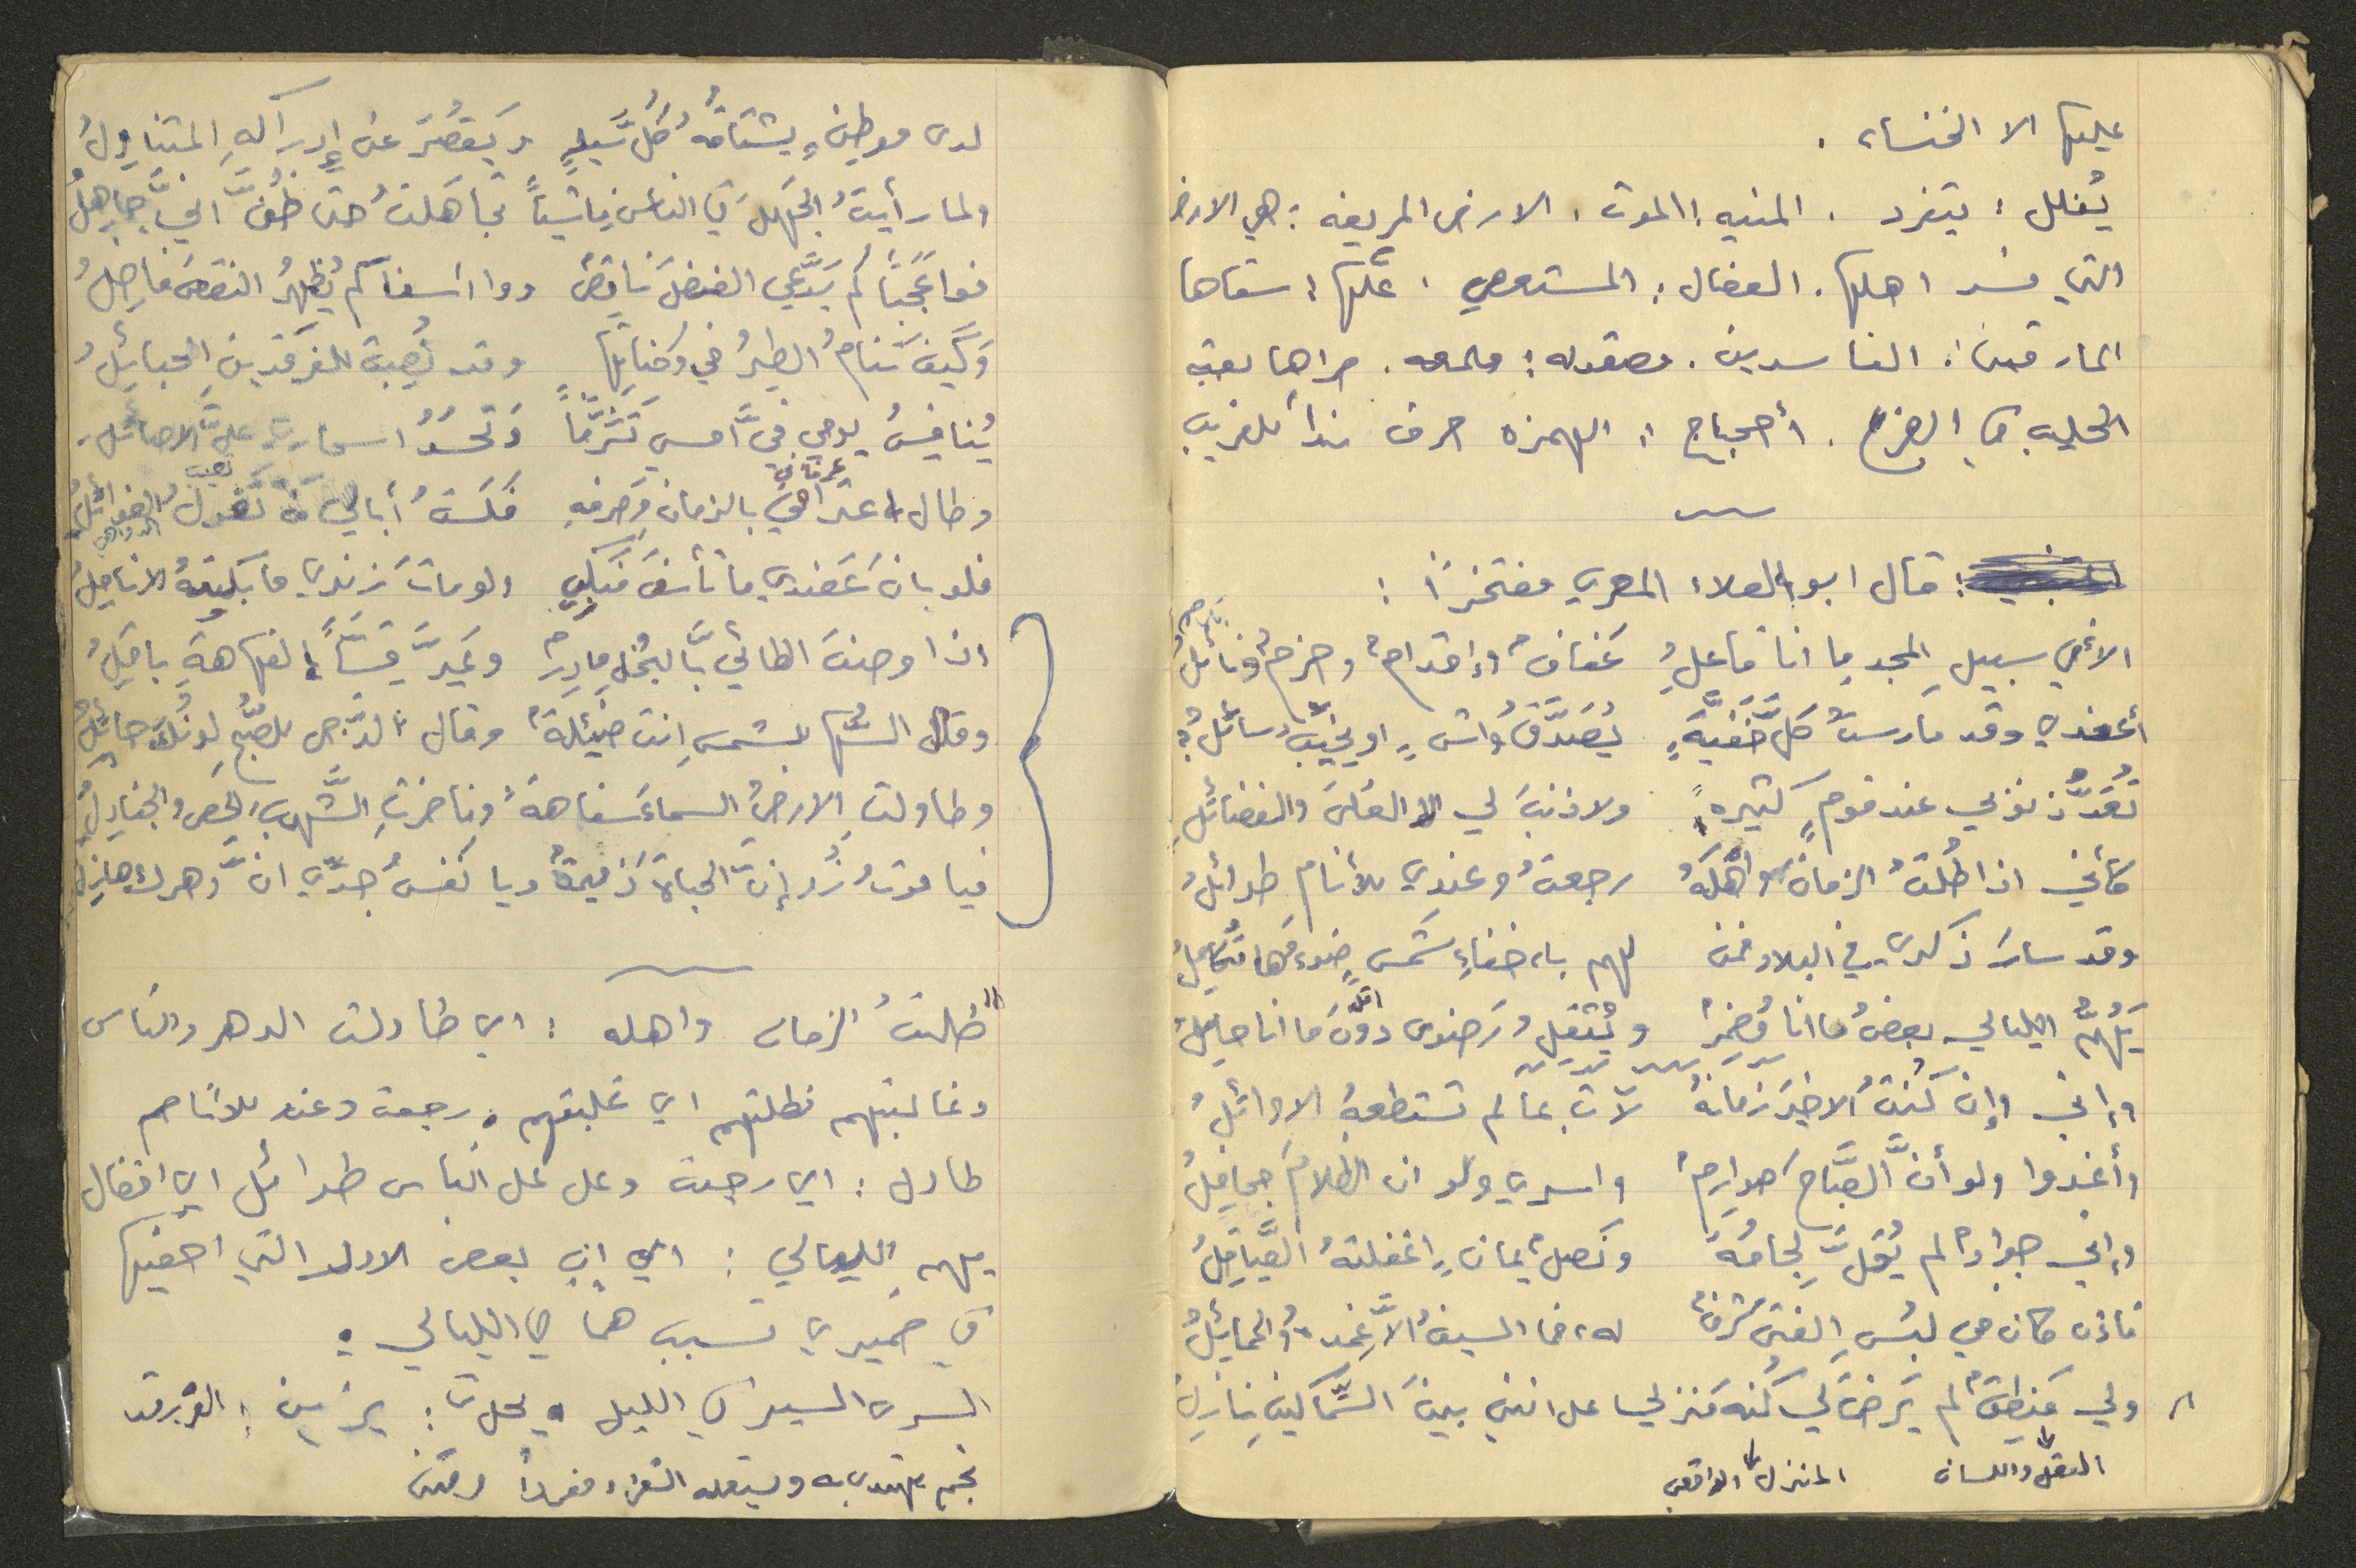 عليها الا الخنساء .
يُغلل : يتفرد . المنيه : الموت . الارض المريضه : هي الارض
التي فسد اهلها . العضال : المستعصي . علّها : سقاها
المارقين : الفاسدين . مصقوله : . صراها بقية
الحليب في الضرع . أحجاج : الهمزه حرف نداً للقريب
: قال ابو العلاء المعري مفتخرًا :
الا في سبيلِ المجدِ ما انا فاعلُ عَفافٌ وإقدامٌ وحزمٌ ونائلُ
أعندي وقد مارستُ كلَّ خَفيَّةٍ يُصَدَّقُ واشٍ او يخيّبُ سائلُ
تُعَدُّ ذنوبي عند قومٍ كثيرهً ولا ذنبَ لي الا العُلىَ والفضائلُ
كأني اذا طُلتُ الزمانَ وأهلَهُ رجعتُ وعندي للأنامِ طوائلُ
وقد سارَ ذكري في البلادِ فمن لهم باخفاءِ شمسٍ ضوءُها متكاملُ
يُهِمُّ الليالي بعضُ ما انا مُضمِرٌ ويُثقِلُ رَضوى دونَ ما انا حاملُ
اقلّ
وإني وإن كنتُ الاخيرَ زمانهُ لآتٍ بما لم تستطعهُ الاوائلُ
وأغدوا ولو أنَّ الصَّباحَ صوارمٌ واسري ولو ان الظلامَ جحافلُ
وإني جوادٌ لم يُحَلَّ لجامُهُ ونَصلٌ يمانٍ اغفلتهُ الصَّياقلُ
فاذن كان في لبسِ الفتى شرفٌ له ، فما السيفُ الاَّ غِمدُهُ والحمائلُ
ولي مَنطِقٌ لم يَرضَ لي كُنهَ مَنزلي على انني بينَ السِّماكينِ نازلُ
العقل واللسان المنزل الواقعي
لدى موطنٍ يشتاقُهُ كلُّ سَيِّدٍ ويَقصُرُ عن إدراكهِ المتناوِلُ
ولما رأيتُ الجَهلَ في الناسِ فاشياً تجاهَلتُ حتى ظُنَّ انيَ جاهلُ
فواعَجَبَا كم يَدَّعي الفضلَ ناقصٌ ووا اسفا كم يُظهِرُ النقصَ فاضلُ
وَكَيفَ تَنامُ الطيرُ في وُكناتِها وقد نُصِبت للفرقدينِ الحبائلُ
يُنافِسُ يومي فيَّ أمسي تَشَرُّفاً وَتَحسُدُ اسحاري عليَّ الاصائلُ
وطال اعترافي بالزمانِ وَصَرفهِ فَلَستُ أُبالي مَن تَغولُ الغوائلُ
عرفاني
فلو بانَ عَضُدي ما تأسفَ مَنكِبي ولو ماتَ زندي ما بَكَتهُ الاناملُ
اذا وصفَ الطائيَّ بالبُخلِ مادرٌ وعَيَّرَ قِسَّاً بالفهاههِ باقلُ
وقال السُّها للشمسِ انتِ ضئيلةٌ وقال الدُّجى للصُّبحِ لونُكَ حائلُ
وطاولتِ الارضُ السماءَ سفاهةً وفاخرتِ الشُّهبَ الحصى والجنادلُ
فيا موتُ زُر إنَّ الحياةَ ذميمةٌ ويا نفسُ جدِّي انَّ دهرك هازلُ
"طلتُ الزمان واهله : اي طاولت الدهر والناس
وغالبتهم فطلتهم اي غلبتهم . رجعت وعند للانام
طاول : اي رجعت وعلى على الناس طوائل اي افضال
يهم الليالي : اي إن بعض الامور التي اخفيها
في ضميري تسبب هما في الليالي .
السرى السير في الليل . يحلّى : يزين : الفرقد
نجم يهتدى به ويستعمله الشعراء مفرداً ومثنى